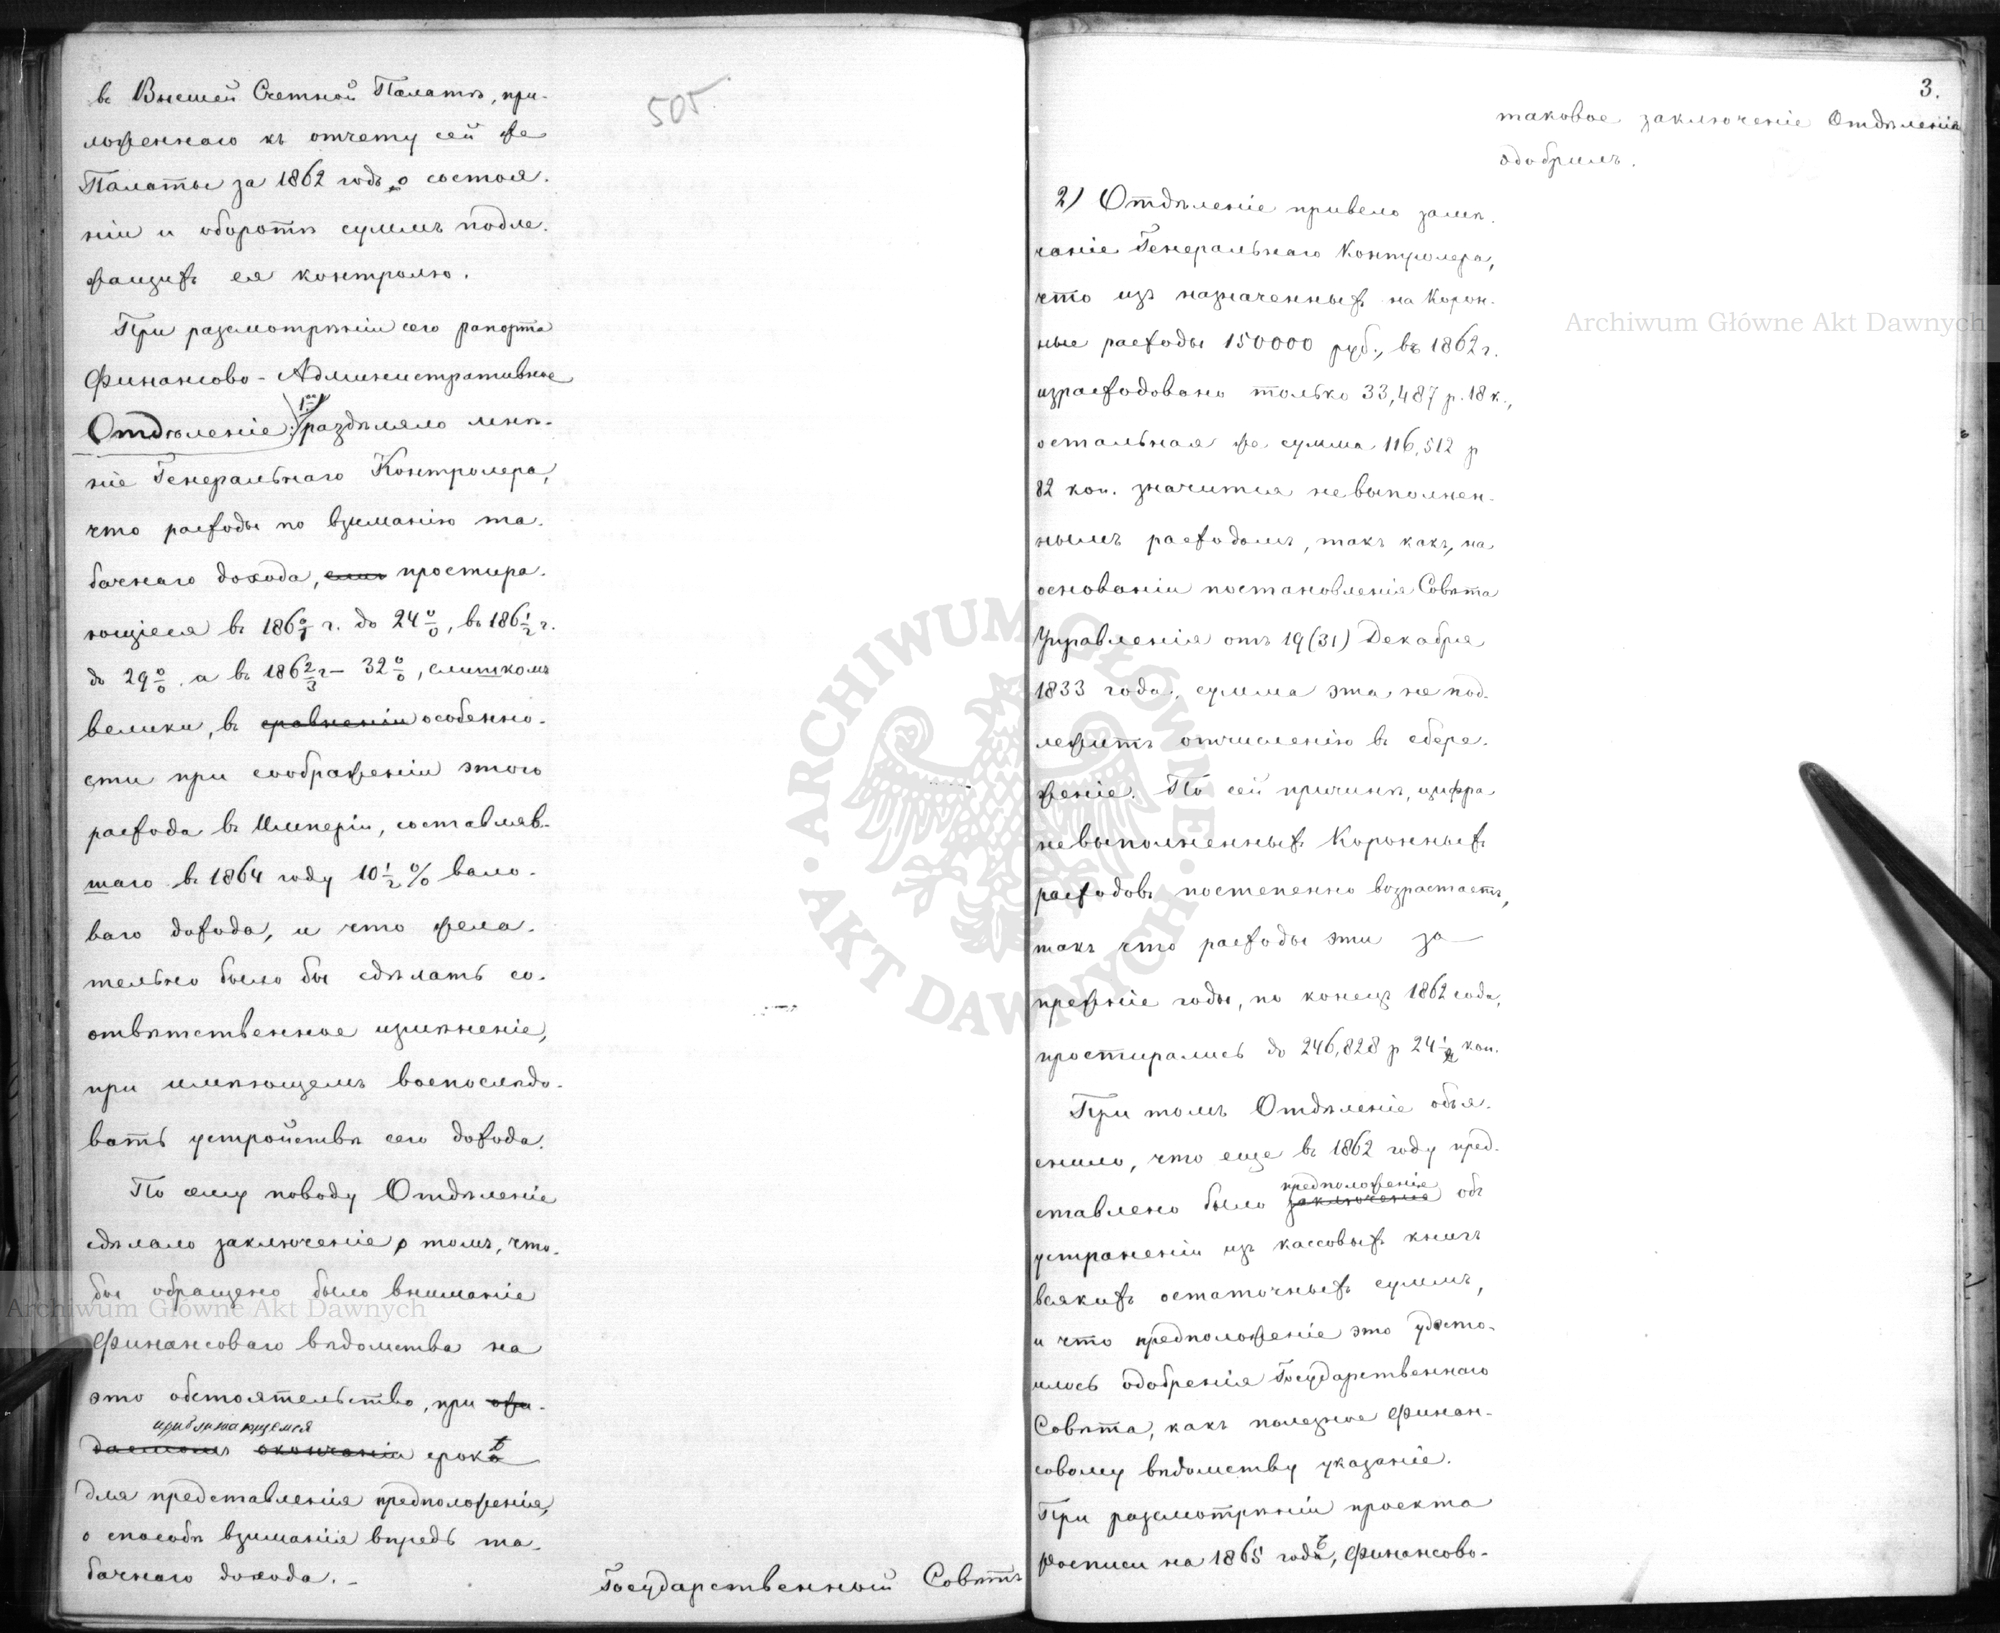 въ Высшей Счетной Палатѣ, при-
ложеннаго къ отчету сей же
Палаты за 1862 годъ о состоя-
ніи и оборотѣ суммъ подле-
жащихъ ея контролю.
При разсмотрѣніи сего рапорта
Финансово-Административное
Отдѣленіе: 1ое/ раздѣляло мнѣ-
ніе Генеральнаго Контролера,
что расходы по взиманію та-
бачнаго дохода, простира-
ющіеся въ 1860/1 г. до 24%, въ 1861/2 г.
до 29%, а въ 1862/3 г – 32%, слишкомъ
велики, въ сравненіи особенно-
сти при соображеніи этого
расхода въ Имперіи, составляв-
шаго въ 1864 году 10 1/2 % вало-
ваго дохода, и что жела-
тельно было бы сдѣлать со-
отвѣтственное измѣненіе,
при имѣющемъ воспослѣдо-
вать устройствѣ сего дохода.
По сему поводу Отдѣленіе
сдѣлало заключеніе о томъ, что-
бы обращено было вниманіе
Финансоваго вѣдомства на
это обстоятельство, при ожи-
приближающемся
даемомъ окончаніи срокѣ
для представленія предположенія,
о способѣ взиманія впредь та-
бачнаго дохода. –
505
Государственный Совѣтъ
3.
таковое заключеніе Отдѣленія
одобрилъ.
2) Отдѣленіе привело замѣ-
чаніе Генеральнаго Контролера,
что изъ назначенныхъ на Корон-
ные расходы 150000 руб., въ 1862 г.
израсходовано только 33,487 р. 18 к.,
остальная же сумма 116,512 р
82 коп. значится невыполнен-
нымъ расходомъ, такъ какъ, на
основаніи постановленія Совѣта
Управленія отъ 19 (31) Декабря
1833 года, сумма эта не под-
лежитъ отчисленію въ сбере-
женіе. По сей причинѣ, цифра
невыполненныхъ Коронныхъ
расходовъ постепенно возрастаетъ,
такъ что расходы эти за
прежніе годы, по конецъ 1862 года,
простирались до 246,828 р 24 1/2 коп.
При томъ Отдѣленіе объя-
снило, что еще въ 1862 году пред-
предположеніе
ставлено было заключеніе объ
устраненіи изъ кассовыхъ книгъ
всякихъ остаточныхъ суммъ,
и что предположеніе это удосто-
илось одобренія Государственнаго
Совѣта, какъ полезное Финан-
совому вѣдомству указаніе.
При разсмотрѣніи проекта
росписи на 1865 годъ, Финансово-
Archiwum Główne Akt Dawnych
Archiwum Główne Akt Dawnych
ARCHIWUM GŁÓWNE · AKT DAWNYCH ·